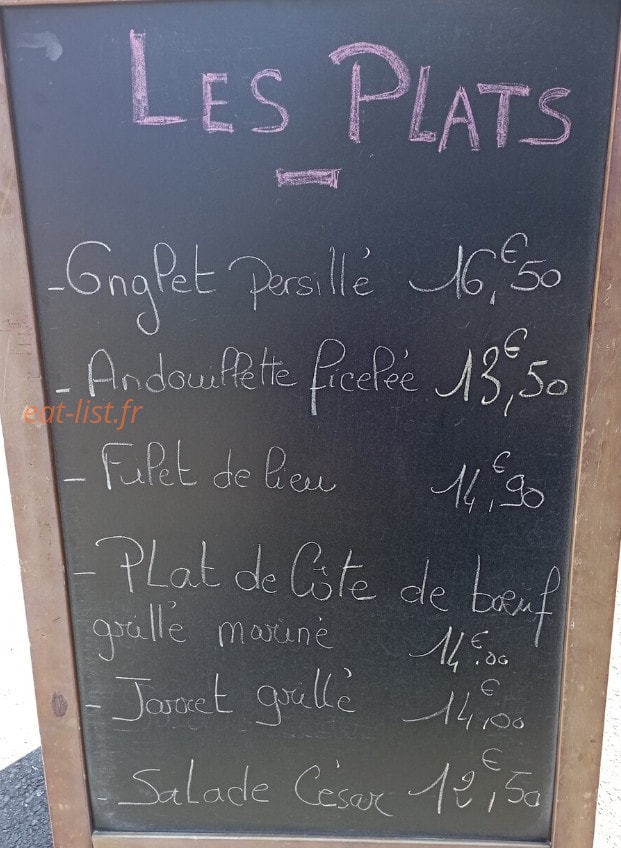 LES PLATS
- Onglet persillé 16,€50
- Andouillette ficelée 13,€50
eat-list.fr
- Filet de lieu 14,€90
- Plat de Côte de bœuf
grillé mariné 14€.00
- Jarret grillé 14,€00
- Salade César 12,€50